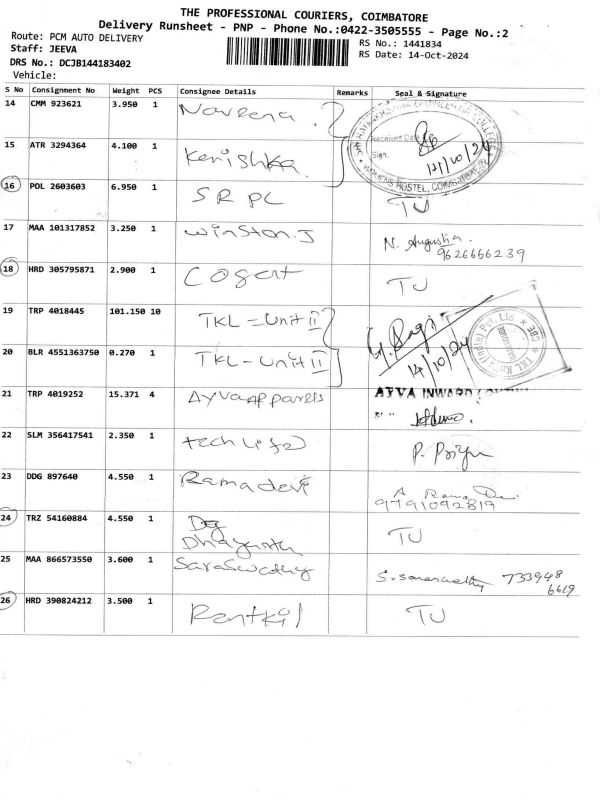 THE PROFESSIONAL COURIERS, COIMBATORE
Delivery Runsheet - PNP - Phone No.:0422-3505555 - Page No.:2
Route: PCM AUTO DELIVERY
RS No.: 1441834
Staff: JEEVA
RS Date: 14-Oct-2024
DRS No.: DCJB144183402
Vehicle:
S No Consignment No Weight PCS Consignee Details Remarks Seal & Signature
14 CMM 923621 3.950 1 Naveena
Received Date
Sign. 14/10/24
WOMENS HOSTEL, COIMBATORE
15 ATR 3294364 4.100 1 Kanishka
16 POL 2603603 6.950 1 SRPL TU
17 MAA 101317852 3.250 1 Winston.J N. Augustia.
9626666239
18 HRD 305795871 2.900 1 Cogent TU
19 TRP 4018445 101.150 10 TKL-Unit II
20 BLR 4551363750 0.270 1 TKL-Unit II 14/10/24
21 TRP 4019252 15.371 4 Ayva apparels AYVA INWARD
22 SLM 356417541 2.350 1 techlife P. Priya
23 DDG 897640 4.550 1 Ramadevi
9791092819
24 TRZ 54160884 4.550 1 TU
25 MAA 866573550 3.600 1 Saraswathy S. Saraswathy 733948
6619
26 HRD 390824212 3.500 1 Rentkil TU